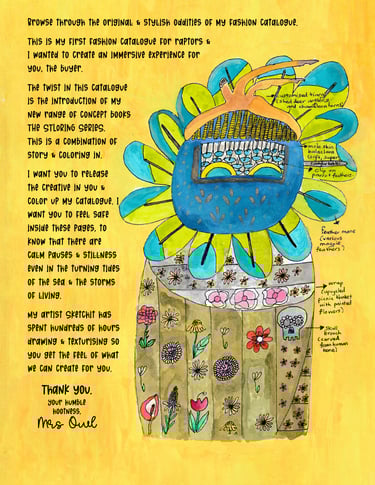 Browse through the original & stylish oddities of my fashion catalogue.
This is my first fashion catalogue for raptors &
I wanted to create an immersive experience for
you, the buyer.
The twist in this catalogue
is the introduction of my
new range of concept books
the StLoring Series.
This is a combination of
story & coloring in.
I want you to release
the creative in you &
color up my catalogue. I
want you to feel safe
inside these pages, to
know that there are
calm pauses & stillness
even in the turning tides
of the sea & the storms
of living.
My artist Sketchit has
spent hundreds of hours
drawing & texturising so
you get the feel of what
we can create for you.
Thank you,
your humble
hootness,
Mrs Owl
customised tiara
(shed deer antlers
and chameleon horns)
mole skin
balaclava
clip on
parrot feathers
feather mane
(various
magpie
feathers)
wrap
(upcycled
picnic blanket
with painted
flowers)
skull
brooch
(carved
from human
bone)